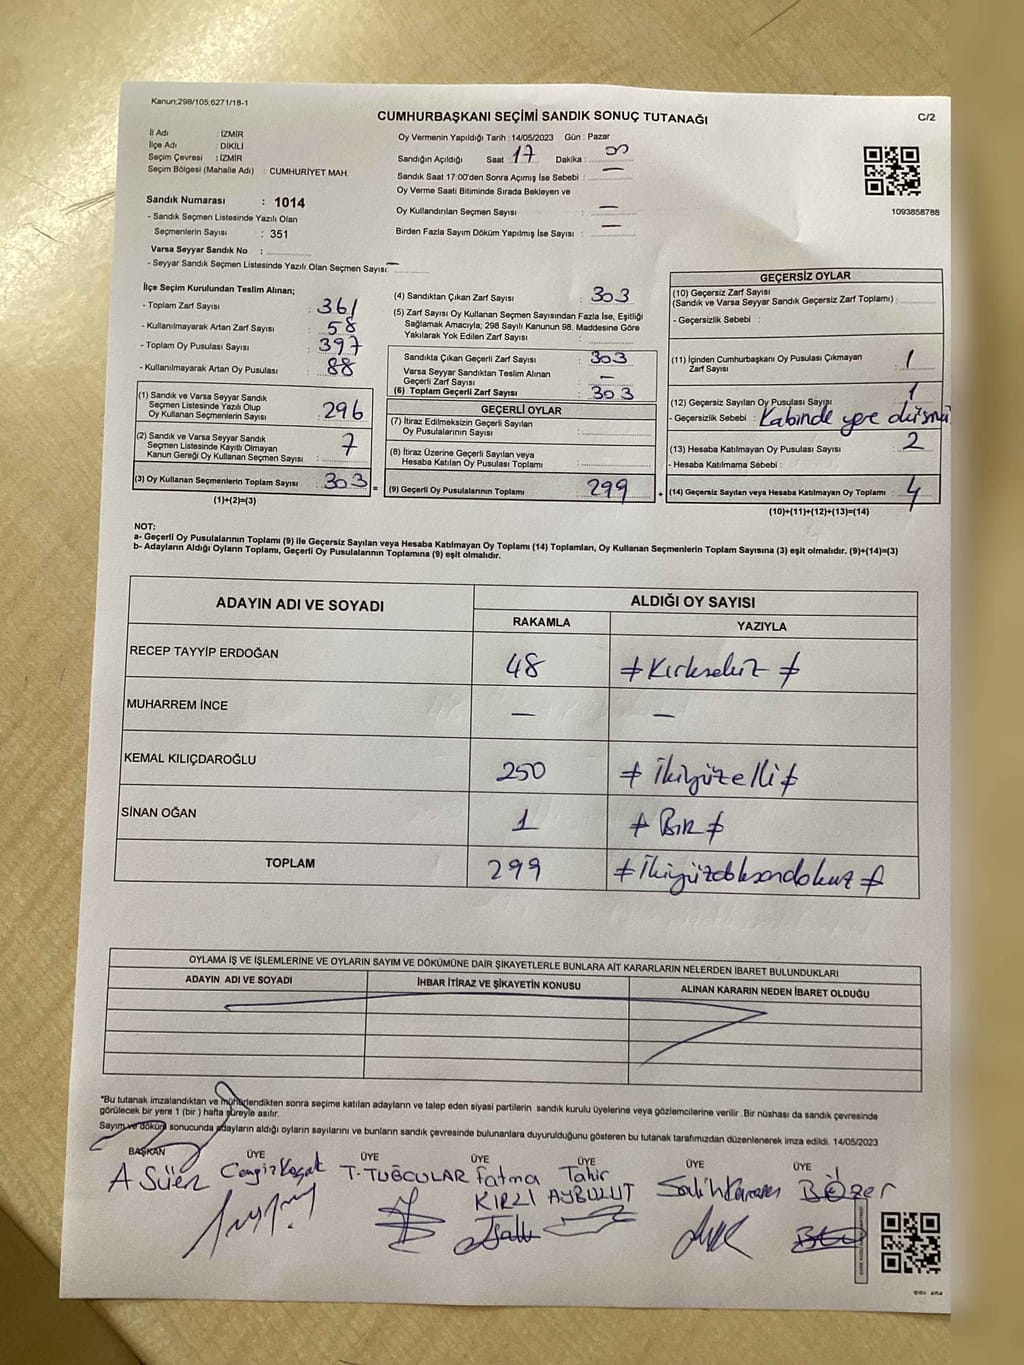 Kanun;298/105,6271/18-1
CUMHURBAŞKANI SEÇİMİ SANDIK SONUÇ TUTANAĞI
C/2
İl Adı : İZMİR
İlçe Adı : DİKİLİ
Seçim Çevresi : İZMİR
Seçim Bölgesi (Mahalle Adı) : CUMHURİYET MAH.
Sandık Numarası : 1014
- Sandık Seçmen Listesinde Yazılı Olan
Seçmenlerin Sayısı : 351
Varsa Seyyar Sandık No :
- Seyyar Sandık Seçmen Listesinde Yazılı Olan Seçmen Sayısı: —
Oy Vermenin Yapıldığı Tarih : 14/05/2023 Gün : Pazar
Sandığın Açıldığı Saat : 17 Dakika :
Sandık Saat 17:00'den Sonra Açımış İse Sebebi : —
Oy Verme Saati Bitiminde Sırada Bekleyen ve
Oy Kullandırılan Seçmen Sayısı : —
Birden Fazla Sayım Döküm Yapılmış İse Sayısı : —
1093858788
İlçe Seçim Kurulundan Teslim Alınan;
- Toplam Zarf Sayısı : 361
- Kullanılmayarak Artan Zarf Sayısı : 58
- Toplam Oy Pusulası Sayısı : 397
- Kullanılmayarak Artan Oy Pusulası : 88
(1) Sandık ve Varsa Seyyar Sandık
Seçmen Listesinde Yazılı Olup
Oy Kullanan Seçmenlerin Sayısı : 296
(2) Sandık ve Varsa Seyyar Sandık
Seçmen Listesinde Kayıtlı Olmayan
Kanun Gereği Oy Kullanan Seçmen Sayısı : 7
(3) Oy Kullanan Seçmenlerin Toplam Sayısı : 303 =
(1)+(2)=(3)
(4) Sandıktan Çıkan Zarf Sayısı : 303
(5) Zarf Sayısı Oy Kullanan Seçmen Sayısından Fazla İse, Eşitliği
Sağlamak Amacıyla; 298 Sayılı Kanunun 98. Maddesine Göre
Yakılarak Yok Edilen Zarf Sayısı :
Sandıkta Çıkan Geçerli Zarf Sayısı : 303
Varsa Seyyar Sandıktan Teslim Alınan
Geçerli Zarf Sayısı : —
(6) Toplam Geçerli Zarf Sayısı : 303
GEÇERLİ OYLAR
(7) İtiraz Edilmeksizin Geçerli Sayılan
Oy Pusulalarının Sayısı :
(8) İtiraz Üzerine Geçerli Sayılan veya
Hesaba Katılan Oy Pusulası Toplamı :
(9) Geçerli Oy Pusulalarının Toplamı : 299 +
GEÇERSİZ OYLAR
(10) Geçersiz Zarf Sayısı
(Sandık ve Varsa Seyyar Sandık Geçersiz Zarf Toplamı) :
- Geçersizlik Sebebi :
(11) İçinden Cumhurbaşkanı Oy Pusulası Çıkmayan
Zarf Sayısı : 1
(12) Geçersiz Sayılan Oy Pusulası Sayısı : 1
- Geçersizlik Sebebi : Kabinde yere düşmü
(13) Hesaba Katılmayan Oy Pusulası Sayısı : 2
- Hesaba Katılmama Sebebi :
(14) Geçersiz Sayılan veya Hesaba Katılmayan Oy Toplamı : 4
(10)+(11)+(12)+(13)=(14)
NOT:
a- Geçerli Oy Pusulalarının Toplamı (9) ile Geçersiz Sayılan veya Hesaba Katılmayan Oy Toplamı (14) Toplamları, Oy Kullanan Seçmenlerin Toplam Sayısına (3) eşit olmalıdır. (9)+(14)=(3)
b- Adayların Aldığı Oyların Toplamı, Geçerli Oy Pusulalarının Toplamına (9) eşit olmalıdır.
ADAYIN ADI VE SOYADI ALDIĞI OY SAYISI
RAKAMLA YAZIYLA
RECEP TAYYİP ERDOĞAN 48 ≠ Kırksekiz ≠
MUHARREM İNCE — —
KEMAL KILIÇDAROĞLU 250 ≠ İkiyüzelli ≠
SİNAN OĞAN 1 ≠ BİR ≠
TOPLAM 299 ≠ İkiyüzdoksandokuz ≠
OYLAMA İŞ VE İŞLEMLERİNE VE OYLARIN SAYIM VE DÖKÜMÜNE DAİR ŞİKAYETLERLE BUNLARA AİT KARARLARIN NELERDEN İBARET BULUNDUKLARI
ADAYIN ADI VE SOYADI İHBAR İTİRAZ VE ŞİKAYETİN KONUSU ALINAN KARARIN NEDEN İBARET OLDUĞU
*Bu tutanak imzalandıktan ve mühürlendikten sonra seçime katılan adayların ve talep eden siyasi partilerin sandık kurulu üyelerine veya gözlemcilerine verilir .Bir nüshası da sandık çevresinde
görülecek bir yere 1 (bir ) hafta süreyle asılır.
Sayım ve döküm sonucunda adayların aldığı oyların sayılarını ve bunların sandık çevresinde bulunanlara duyurulduğunu gösteren bu tutanak tarafımızdan düzenlenerek imza edildi. 14/05/2023
BAŞKAN ÜYE ÜYE ÜYE ÜYE ÜYE ÜYE
A SÜER Cengiz Koşak T.TUĞCULAR Fatma KIRLI Tahir AYBULUT Salih Karaman B.ÖZer